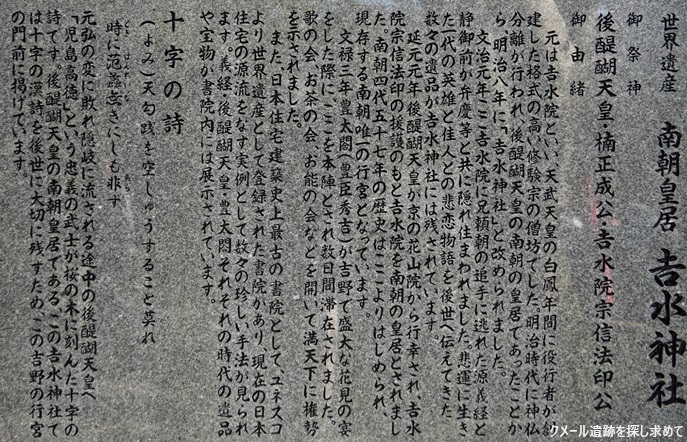 世界遺産 南朝皇居 𠮷水神社
御祭神
後醍醐天皇・楠正成公・𠮷水院宗信法印公
御由緒
元は𠮷水院といい、天武天皇の白鳳年間に役行者が創
建した格式の高い修験宗の僧坊でした。明治時代に神仏
分離が行われ、後醍醐天皇の南朝の皇居であったことか
ら、明治八年に「𠮷水神社」と改められました。
文治元年ここ𠮷水院に兄頼朝の追手に逃れた源義経と
静御前が弁慶等と共に隠れ住まわれました。悲運に生き
た一代の英雄と佳人との悲恋物語を後世へ伝えてきた
数々の遺品が𠮷水神社には残されています。
延元元年後醍醐天皇が京の花山院から行幸され、𠮷水
院宗信法印の援護のもと𠮷水院を南朝の皇居とされまし
た。南朝四代五十七年の歴史はここよりはじめられ、
現存する南朝唯一の行宮となっています。
文禄三年豊太閤(豊臣秀吉)が吉野で盛大な花見の宴
をした際に、ここを本陣とされ数日間滞在されました。
歌の会、お茶の会、お能の会などを開いて満天下に権勢
を示されました。
また、日本住宅建築史上最古の書院として、ユネスコ
より世界遺産として登録された書院があり、現在の日本
住宅の源流をなす実例として数々の珍しい手法が見られ
ます。義経、後醍醐天皇、豊太閤それぞれの時代の遺品
や宝物が書院内には展示されています。
十字の詩
(よみ)天勾践を空しゅうすること莫れ
時に范蠡無きにしも非ず
元弘の変に敗れ隠岐に流される途中の後醍醐天皇へ
『児島高徳』という忠義の武士が桜の木に刻んだ十字の
詩です。後醍醐天皇の南朝皇居である、この𠮷水神社で
は十字の漢詩を後世に大切に残すため、この吉野の行宮
の門前に掲げています。
クメール遺跡を探し求めて